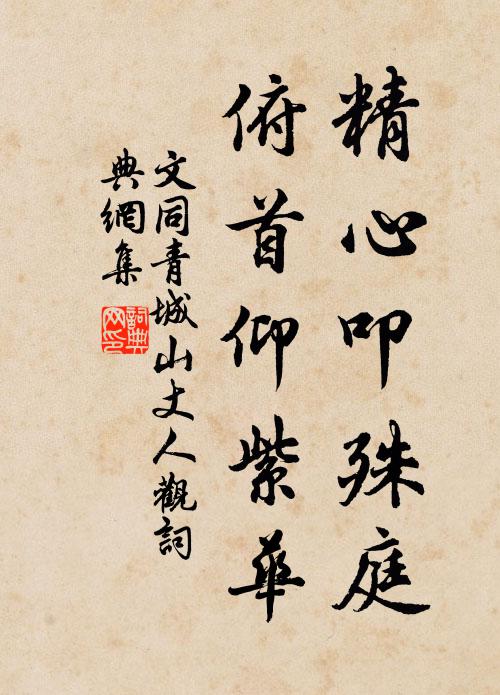 精心叩殊庭
俯首仰紫華
文同青城山丈人觀詞
典網集
詞典
网印